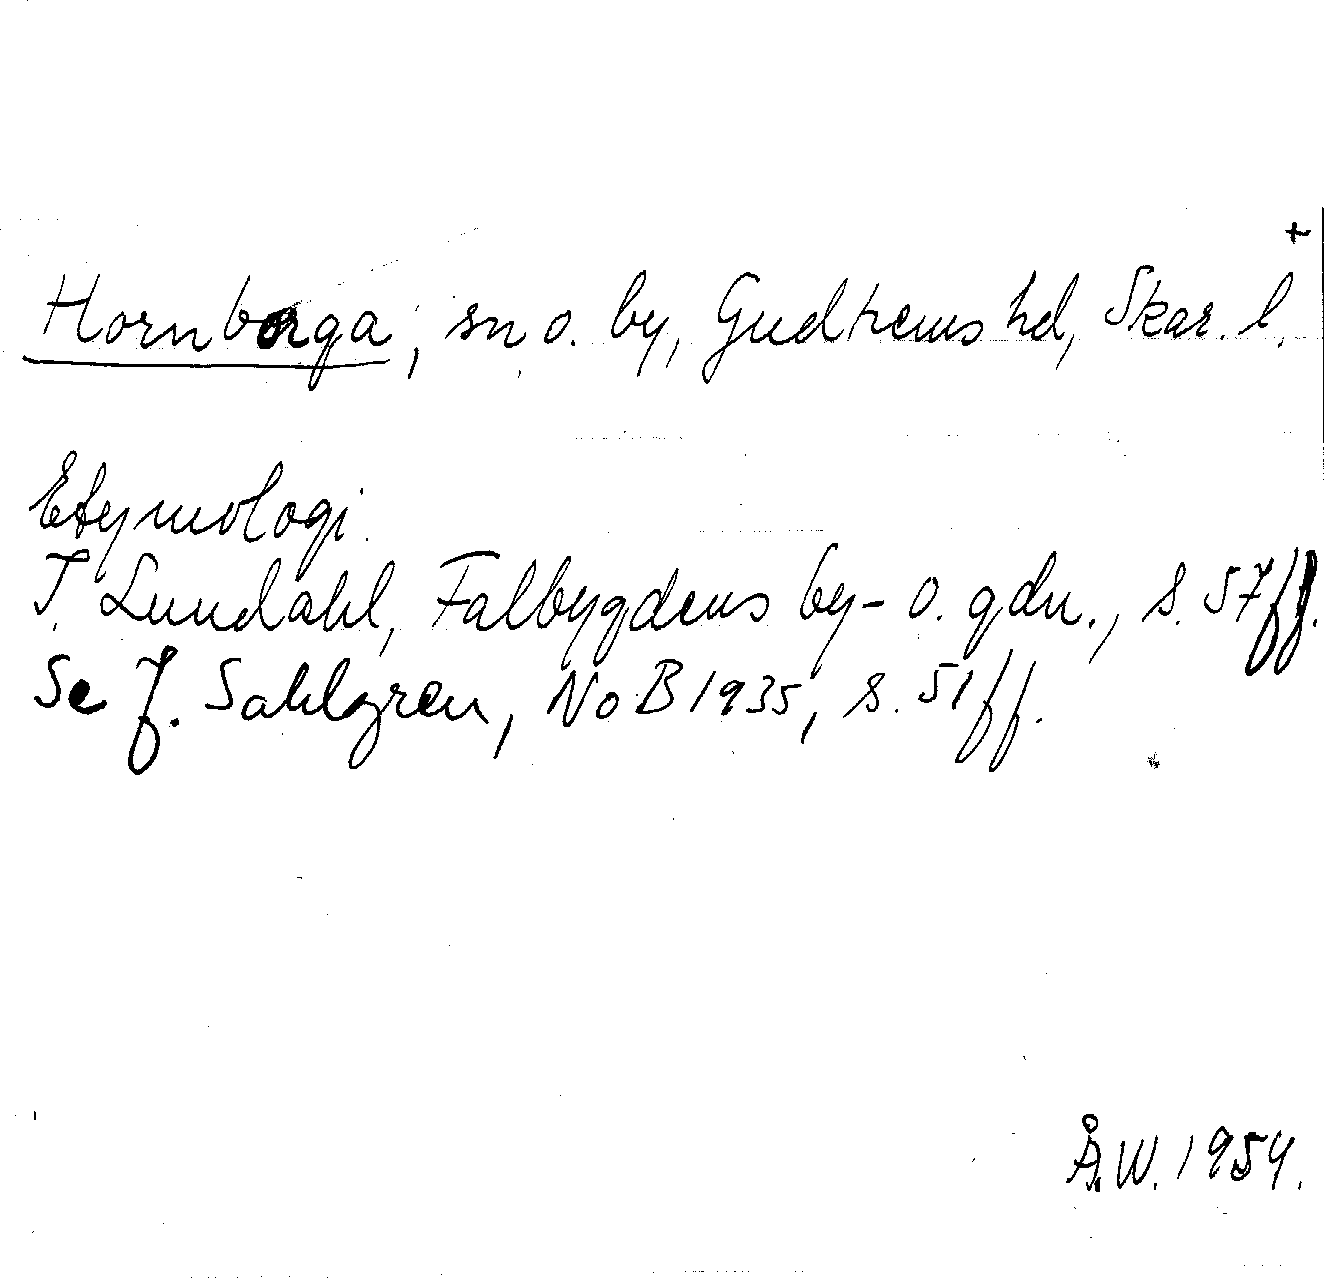 +
Hornborga, sn o. by, Gudhems hd, Skar. l.
Etymologi.
I. Lundahl, Falbygdens by- o. gdn., s. 57ff.
Se J. Sahlgren, NoB 1935, s. 51ff.
Å.W. 1954.